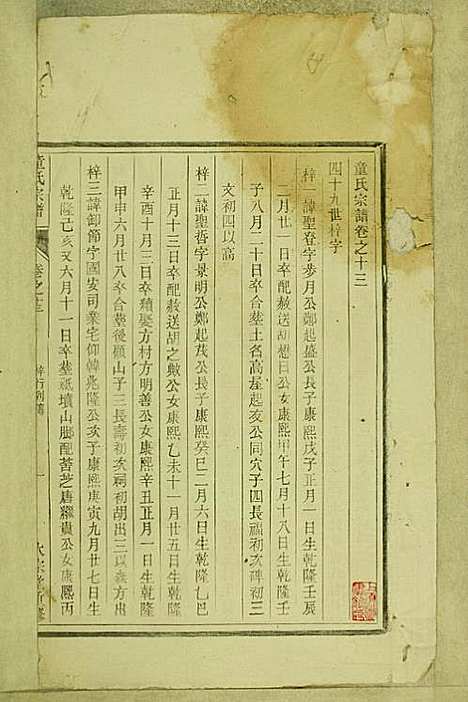 童氏宗譜卷之十三
四十九世梓字
梓一諱聖登字步月公鄭起盛公長子康熙戊子正月一日生乾隆壬辰
二月廿一日卒配赦送胡想曰公女康熙甲午七月十八日生乾隆壬
子八月二十日卒合塟土名高屋起亥公同穴子四長福初次碑初三
文初四以高
梓二諱聖哲字景明公鄭起茂公長子康熙癸巳二月六日生乾隆乙巴
正月十三日卒配赦送胡之數公女康熙乙未十一月廿五日生乾隆
辛酉十月三日卒續娶方村方明善公女康熙辛丑正月一日生乾隆
甲申六月廿八卒合塟後顧山子三長壽初次祠初胡出三以森方出
梓三諱御節字國安司業宅仰韓兆隆公次子康熙庚寅九月廿七日生
乾隆己亥又六月十一日卒塟祗墳山腳配善芝唐繼貴公女康熙丙
童氏宗譜 卷之十三 梓行列傳 一